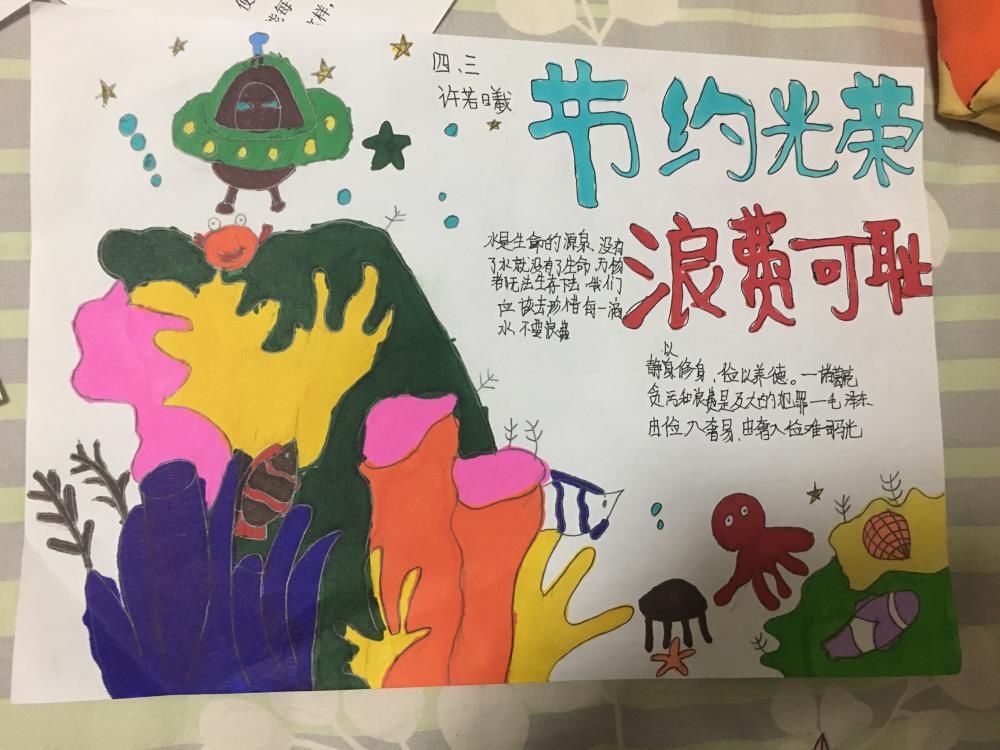 四、三
许若曦
节约光荣
浪费可耻
水是生命的源泉,没有
了水就没有了生命,万物
者阮法生存下去,我们
应该去珍惜每一滴
水,不要浪费
以
静身修身,俭以养德。一诸葛亮
贪污和浪费是及大的犯罪一毛泽东
由俭入奢易,由奢入俭难 司马光